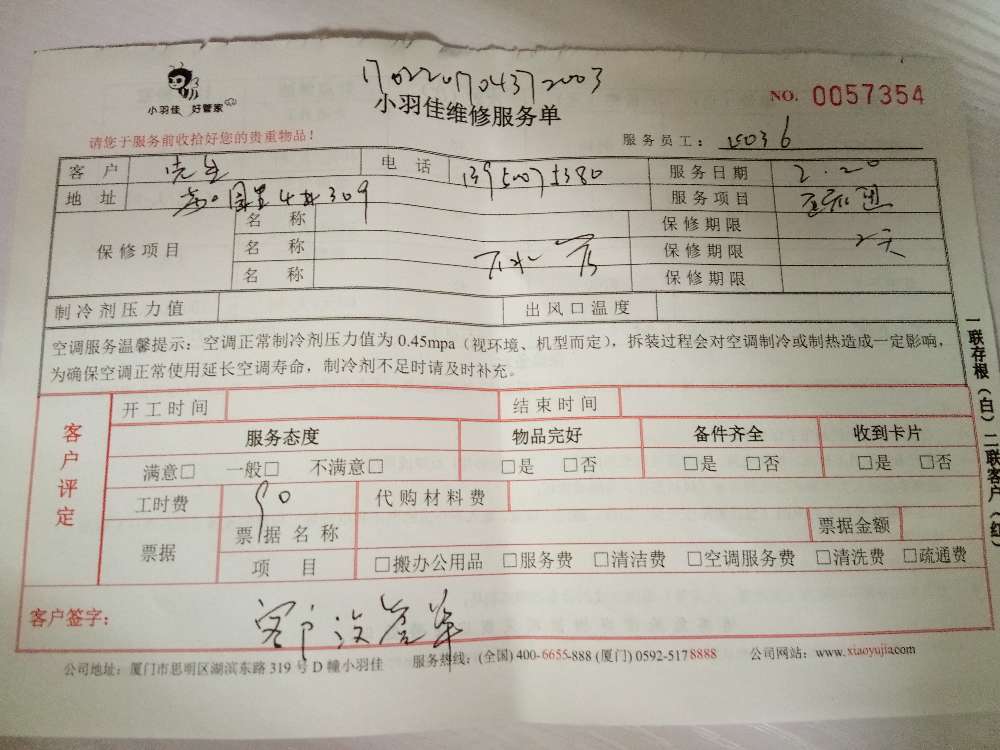 1702201704372003
小羽佳 好管家
小羽佳维修服务单
NO. 0057354
请您于服务前收拾好您的贵重物品！
服务员工：
客户 先生 电话 服务日期 2.20
地址 4 309 服务项目
保修项目 名称 保修期限
名称 保修期限 2天
名称 保修期限
制冷剂压力值 出风口温度
空调服务温馨提示：空调正常制冷剂压力值为 0.45mpa（视环境、机型而定），拆装过程会对空调制冷或制热造成一定影响，
为确保空调正常使用延长空调寿命，制冷剂不足时请及时补充。
一联存根（白）二联客户（红）
客户评定
开工时间 结束时间
服务态度 物品完好 备件齐全 收到卡片
满意□ 一般□ 不满意□ □是 □否 □是 □否 □是 □否
工时费 90 代购材料费
票据 票据名称 票据金额
项目 □搬办公用品 □服务费 □清洁费 □空调服务费 □清洗费 □疏通费
客户签字： 客户没签单
公司地址：厦门市思明区湖滨东路 319 号 D 幢小羽佳 服务热线：(全国) 400-6655-888 (厦门) 0592-5178888 公司网站：www.xiaoyujia.com